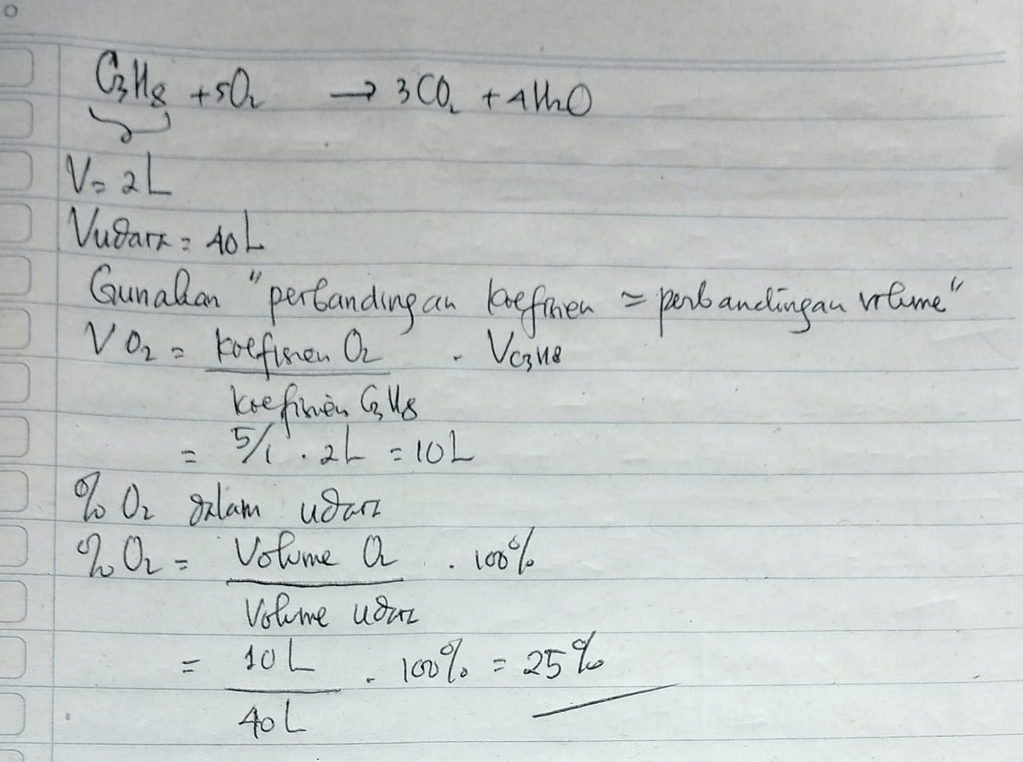 C3H8 + 5O2 → 3CO2 + 4H2O
V = 2L
Vudara = 40L
Gunakan "perbandingan koefisien = perbandingan volume"
V O2 = koefisien O2 . VC3H8
koefisien C3H8
= 5/1 . 2L = 10L
% O2 dalam udara
% O2 = Volume O2 . 100%
Volume udara
= 10L . 100% = 25%
40L